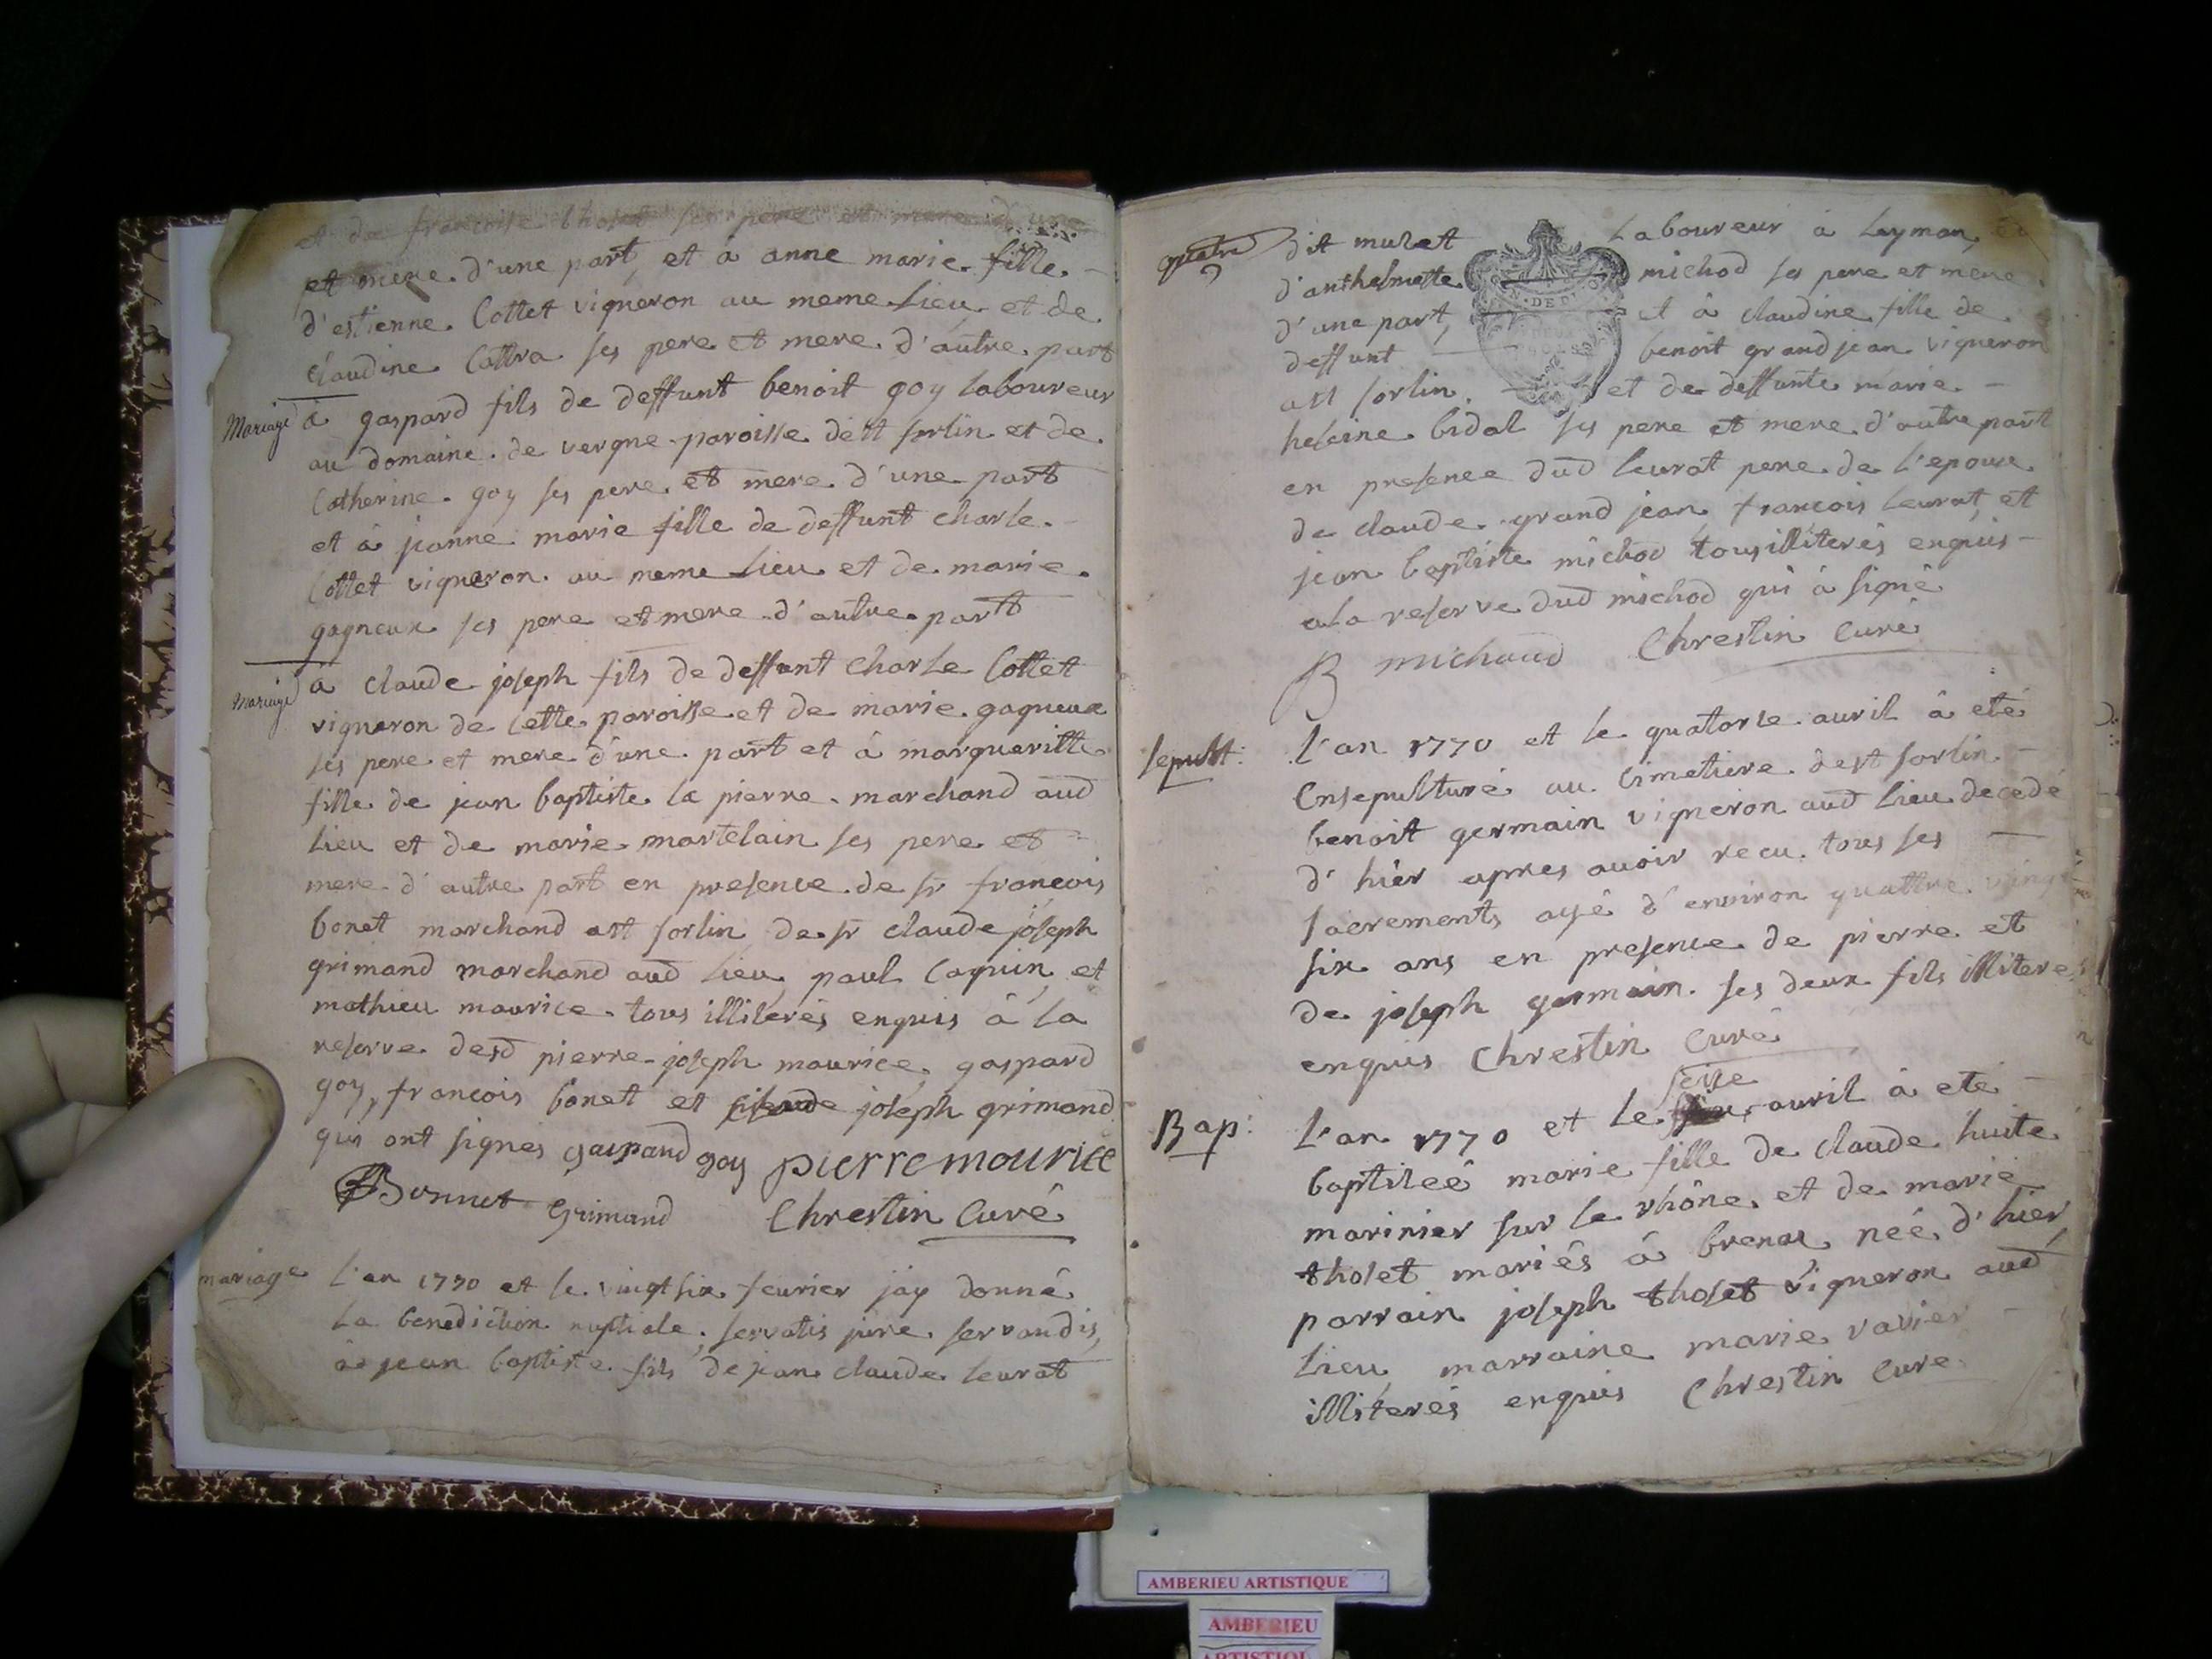 et de francoise tholet ses pere et mere d'une
et mere d'une part, et à anne marie fille
d'estienne Cottet vigneron au meme lieu et de
claudine Cottra ses pere et mere d'autre part
Mariage à gaspard fils de deffunt benoit goy laboureur
au domaine de vergne paroisse de st sorlin et de
Catherine goy ses pere et mere d'une part
et à jeanne marie fille de deffunt charle
Cottet vigneron au meme lieu et de marie
gagneux ses pere et mere d'autre part
Mariage à claude joseph fils de deffunt Charle Cottet
vigneron de cette paroisse et de marie gagneux
ses pere et mere d'une part et à margueritte
fille de jean baptiste la pierre marchand aud
lieu et de marie martelain ses pere et
mere d'autre part en presence de sr francois
bonet marchand a st sorlin de sr claude joseph
grimand marchand aud lieu, paul Caquin, et
mathieu maurice tous illiterés enquis à la
reserve desd pierre joseph maurice, gaspard
goy, francois bonet et claude joseph grimand
qui ont signes gaspand goy pierre mourice
Bonnet Grimand Chrestin Curé
mariage L'an 1770 et le vingt six feurier jay donné
la benediction nuptiale, servatis jure servandis,
à jean baptiste fils de jean claude leurat
quatre dit mulet Laboureur à Leyman, et
d'anthelmette michod ses pere et mere
d'une part, et à claudine fille de
deffunt benoit grand jean vigneron
a st sorlin et de deffunte marie
heleine bidal ses pere et mere d'autre part
en presence dud leurat pere de l'epoux
de claude grand jean, francois leurat, et
jean baptiste michod tous illiterés enquis
a la reserve dud michod qui à signé
B michaud Chrestin Curé
sepult: L'an 1770 et le quatorse auril à eté
Ensepulturé au Cimetiere de st sorlin
benoit germain vigneron aud lieu decedé
d'hier apres auoir recu tous ses
sacrements agé d'environ quattre vingt
six ans en presence de pierre et
de joseph germain ses deux fils illiterés
enquis Chrestin Curé
seise
Bap: L'an 1770 et le auril à eté
baptiseé marie fille de claude huite
marinier sur le rhône, et de marie
tholet mariés à brenas neé d'hier,
parrain joseph tholet vigneron aud
lieu, marraine marie varier
illiterés enquis Chrestin Curé
DE DIJON
AMBERIEU ARTISTIQUE
AMBERIEU
ARTISTIQUE